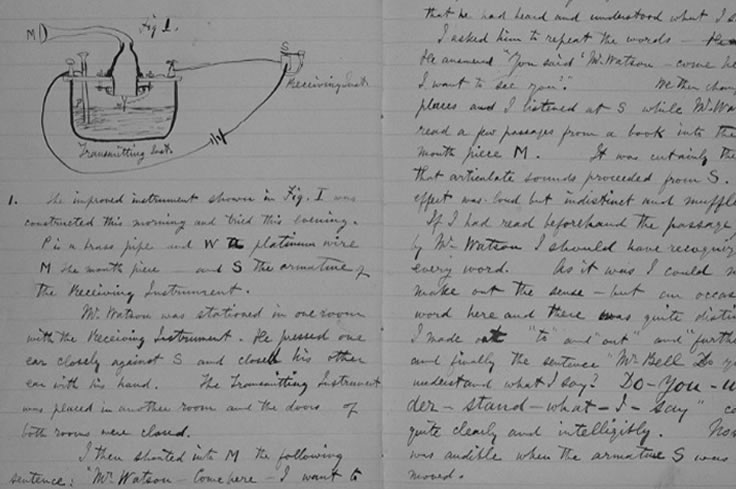 Fig 1.
M
S
Receiving Inst.
Transmitting Inst.
1. The improved instrument shown in Fig. I was
constructed this morning and tried this evening.
P is a brass pipe and W the platinum wire
M the mouth piece — and S the armature of
the Receiving Instrument.
Mr. Watson was stationed in one room
with the Receiving Instrument. He pressed one
ear closely against S and closed his other
ear with his hand. The Transmitting Instrument
was placed in another room and the doors of
both rooms were closed.
I then shouted into M the following
sentence: "Mr. Watson — Come here — I want to
that he had heard and understood what I s
I asked him to repeat the words —
He answered "You said 'Mr. Watson — come he
I want to see you'." We then chan
places and I listened at S while Mr. Wa
read a few passages from a book into the
mouth piece M. It was certainly the
that articulate sounds proceeded from S.
effect was loud but indistinct and muffle
If I had read beforehand the passage
by Mr. Watson I should have recogniz
every word. As it was I could n
make out the sense — but an occas
word here and there was quite distin
I made out "to" and "out" and "furth
and finally the sentence "Mr. Bell Do y
understand what I say? Do - You - u
der - stand - what - I - say" co
quite clearly and intelligibly. No
was audible when the armature S was
moved.